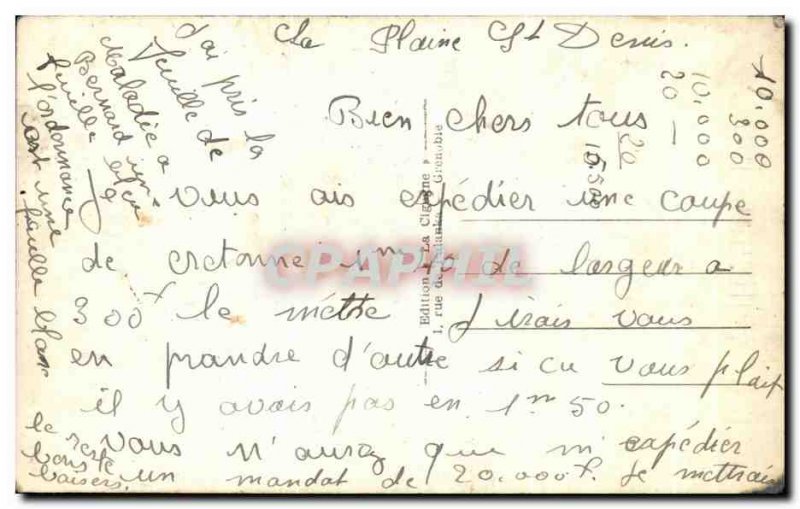 La Plaine St Denis.
Bien chers tous
J vous ais expédier une coupe
de cretonne 1m 40 de largeur a
300f le mettre J irais vous
en prandre d'autre si ca vous plait
il y avais pas en 1m 50.
vous n'aurez que m'expédier
un mandat de 20.000f. Je mettrais
le reste
bons
baisers.
J'ai pris la
feuille de
Maladie a
Bernard
feuille
l'ordonnance
est une
feuille blanc
10.000
300
10.000
20
20
15.300
Edition « La Cigogne »
1, rue de Grenoble
CPAPHIL